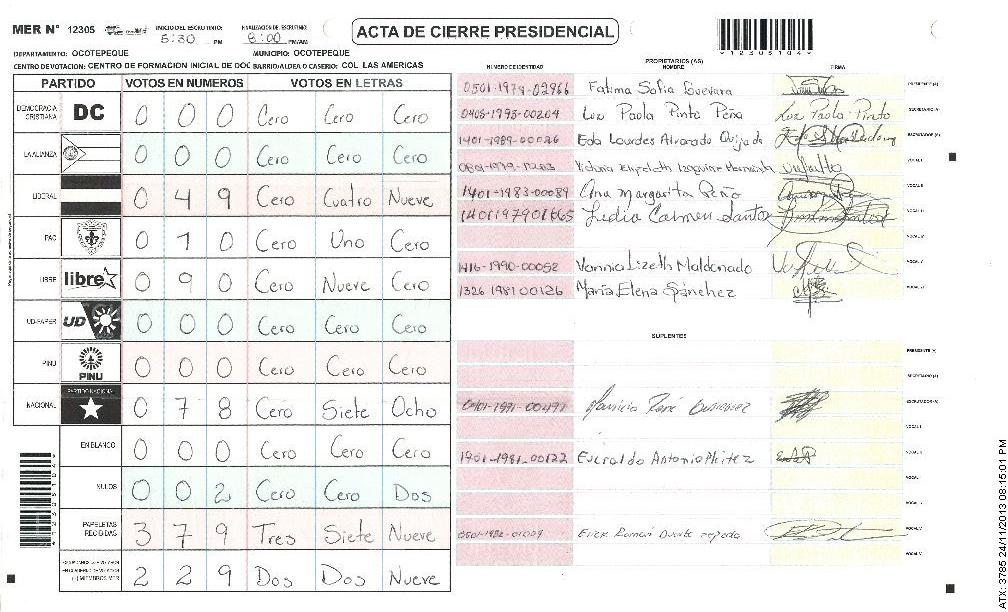 MER N° 12305
INICIO DEL ESCRUTINIO: 5:30 PM
FINALIZACION DEL ESCRUTINIO: 8:00 PM/AM
ACTA DE CIERRE PRESIDENCIAL
DEPARTAMENTO: OCOTEPEQUE MUNICIPIO: OCOTEPEQUE
CENTRO DE VOTACION: CENTRO DE FORMACION INICIAL DE DOC BARRIO/ALDEA O CASERIO: COL LAS AMERICAS
PARTIDO VOTOS EN NUMEROS VOTOS EN LETRAS
DEMOCRACIA CRISTIANA DC 0 0 0 Cero Cero Cero
LA ALIANZA 0 0 0 Cero Cero Cero
LIBERAL 0 4 9 Cero Cuatro Nueve
PAC 0 1 0 Cero Uno Cero
LIBRE libre 0 9 0 Cero Nueve Cero
UD-FAPER UD 0 0 0 Cero Cero Cero
PINU PINU 0 0 0 Cero Cero Cero
NACIONAL PARTIDO NACIONAL 0 7 8 Cero Siete Ocho
EN BLANCO 0 0 0 Cero Cero Cero
NULOS 0 0 2 Cero Cero Dos
PAPELETAS RECIBIDAS 3 7 9 Tres Siete Nueve
2 2 9 Dos Dos Nueve
(+) MIEMBROS MER
12305104
PROPIETARIOS (AS)
NUMERO DE IDENTIDAD NOMBRE FIRMA
0501-1979-02966 Fatima Sofia Guevara PRESIDENTE (A)
0405-1993-00204 Luz Paola Pinto Peña Luz Paola Pinto SECRETARIO (A)
1401-1989-00026 Eda Lourdes Alvarado Quijada ESCRUTADOR (A)
Victoria VOCAL I
1401-1983-00089 Ana Margarita Peño VOCAL II
1401197901665 Lidia Carmen Santos VOCAL III
VOCAL IV
1416-1990-00052 Lizeth Maldonado VOCAL V
1326 1981 00126 María Elena Sánchez VOCAL VI
SUPLENTES
PRESIDENTE (A)
SECRETARIO (A)
Mauricio René ESCRUTADOR (A)
VOCAL I
1401-1981-00122 Everaldo Antonio VOCAL II
VOCAL
VOCAL
Erick Román Duarte VOCAL
VOCAL VI
ATX: 3785 24/11/2013 08:15:01 PM